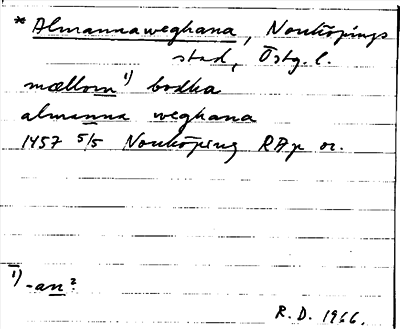 * Almannaweghana, Norrköpings
stad, Östg. l.
mællom ¹) bodha
almanna weghana
1457 5/5 Norrköping RAp or.
¹) -an?
R. D. 1966.